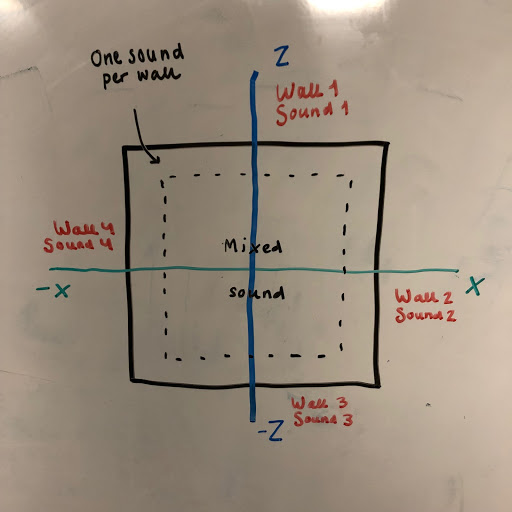 One sound
per wall
Z
Wall 1
Sound 1
Wall 4
Sound 4
Mixed
-X
sound
X
Wall 2
Sound 2
Wall 3
Sound 3
-Z